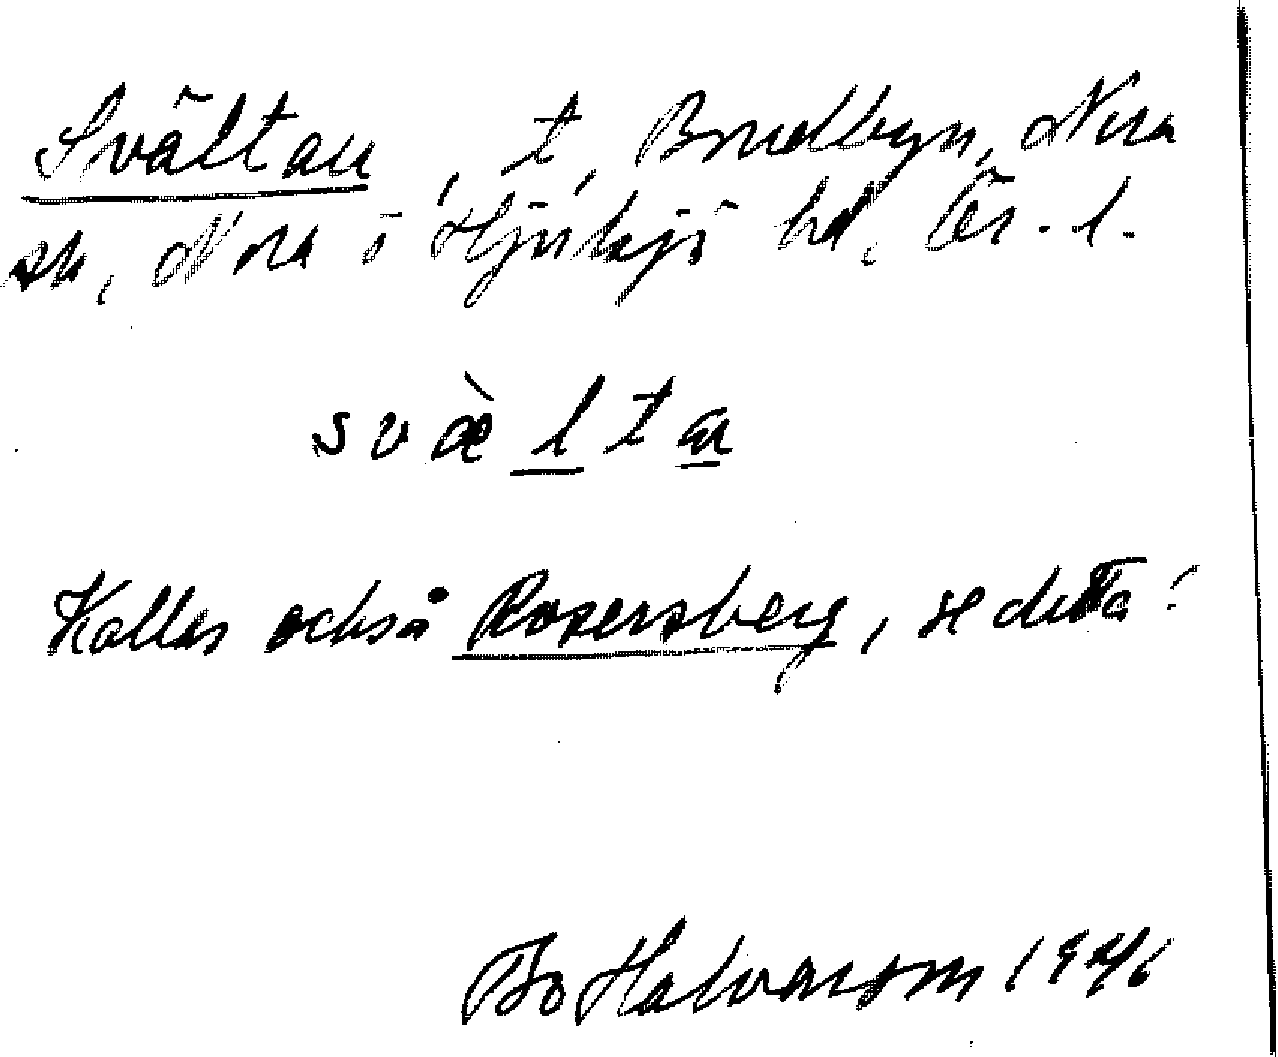 Svältan, t, Bredbyn, Nora
sn, Nora o Hjulsjö hd, Ör. l.
svæ̀lta
Kallas också Rosersberg, se detta!
Bo Halvarson 1946